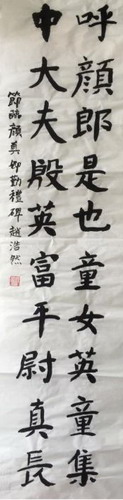 呼顔郎是也童女英童集
中大夫殷英富平尉真長
節臨顏真卿勤禮碑趙浩然